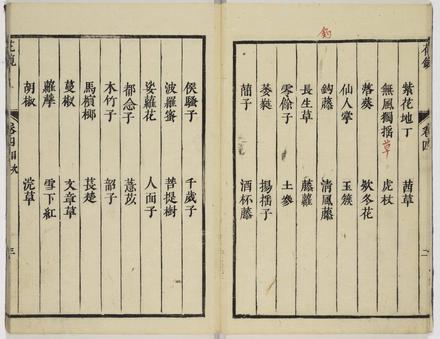 卷四
紫花地丁　茜草
無風獨搖草　虎杖
落葵　欵冬花
仙人掌　玉簇
鈎
鈎藤　清風藤
長生草　藤蘿
零餘子　土參
萎蕤　揚搖子
蕳子　酒杯藤
二
侯騷子　千歲子
波羅蜜　菩提樹
娑蘿花　人面子
都念子　薏苡
木竹子　韶子
馬檳榔　萇楚
蔓椒　文章草
蘿藦　雪下紅
胡椒
花鏡　卷四目次　三